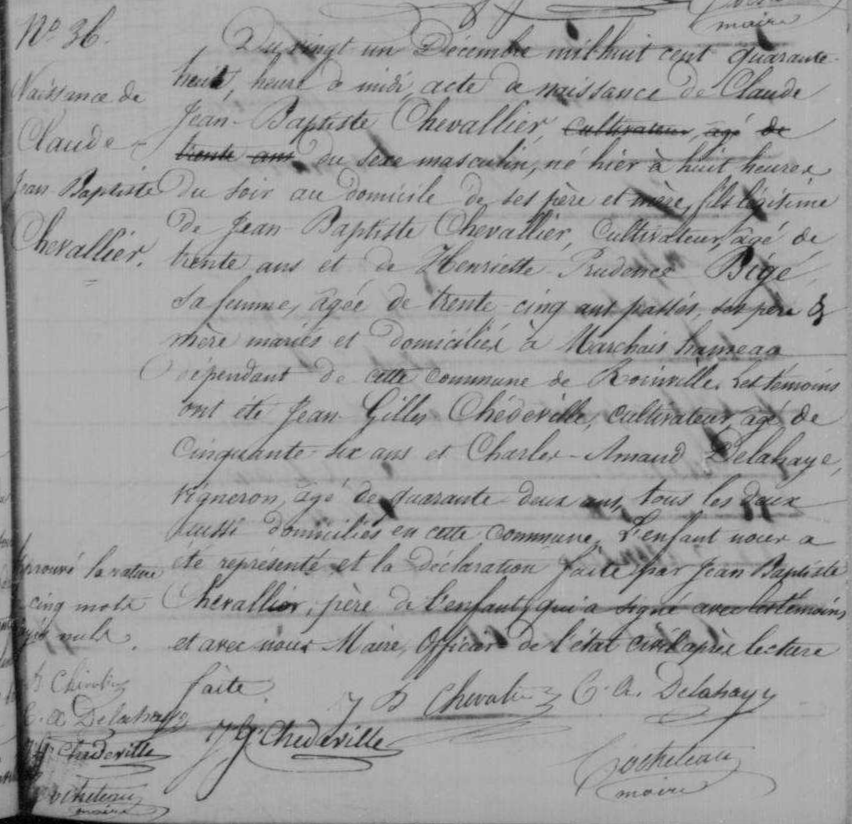 maire
No 36.
Naissance de
Claude
Jean-Baptiste
Chevallier.
Du vingt un Décembre mil huit cent quarante
huit, heure de midi, acte de naissance de Claude
Jean-Baptiste Chevallier cultivateur, agé de
trente ans du sexe masculin, né hier à huit heures
du soir au domicile de ses père et mère, fils légitime
de Jean Baptiste Chevallier, Cultivateur, agé de
trente ans et de Henriette Prudence Bigé,
sa femme, agée de trente-cinq ans passés, ses père &
mère mariés et domiciliés à Marchais hameau
dépendant de cette commune de Roinville. Les témoins
ont été Jean Gilles Chédeville, cultivateur, agé de
cinquante-six ans et Charles-Amand Delahaye,
vigneron, agé de quarante deux ans, tous les deux
aussi domiciliés en cette commune. L'enfant nous a
été représenté et la déclaration faite par Jean Baptiste
Chevallier, père de l'enfant, qui a signé avec les témoins
et avec nous Maire, Officier de l'état civil après lecture
faite
J B Chevalier C. A. Delahaye
J G Chedeville
Cocheteau
maire
approuvé la rature
cinq mots
nuls.
B Chevalier
C. A Delahaye
J G Chedeville
Cocheteau
maire